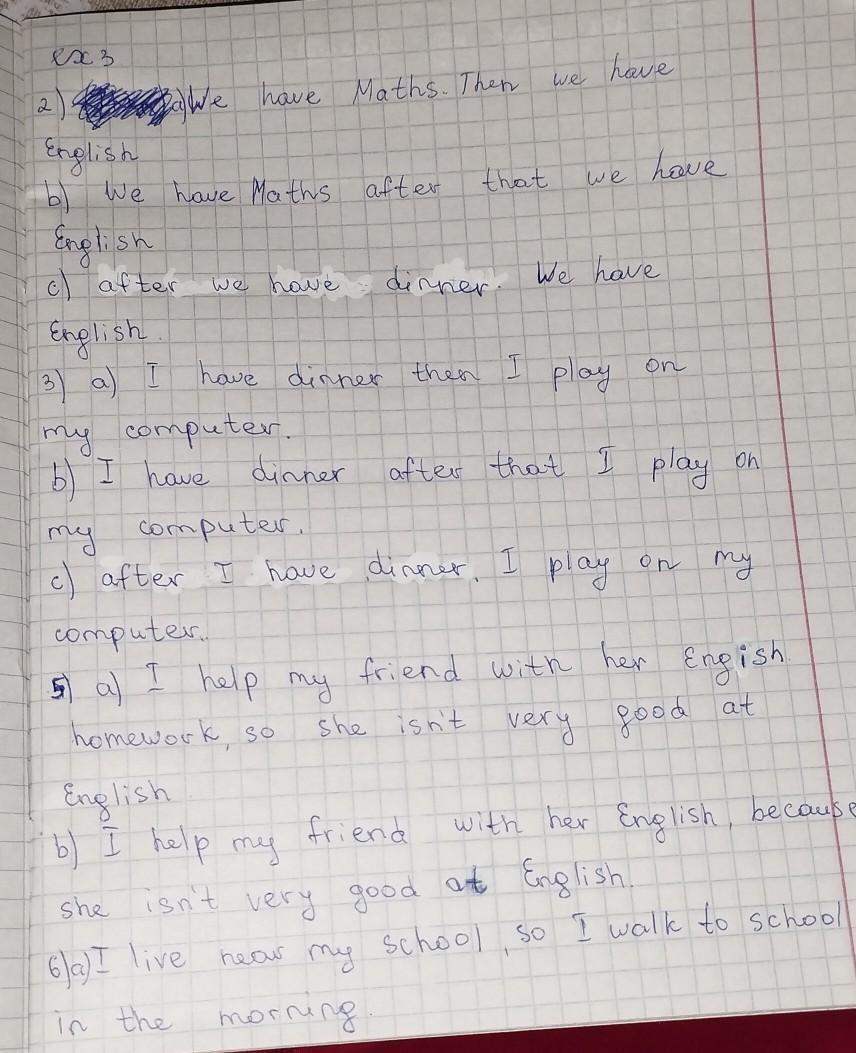 ex 3
2) a) We have Maths. Then we have
English
b) We have Maths after that we have
English
c) after we have dinner. We have
English.
3) a) I have dinner then I play on
my computer.
b) I have dinner after that I play on
my computer.
c) after I have dinner. I play on my
computer.
5) a) I help my friend with her Engish.
homework, so she isn't very good at
English
b) I help my friend with her English, because
she isn't very good at English.
6) a) I live near my school, so I walk to school
in the morning.